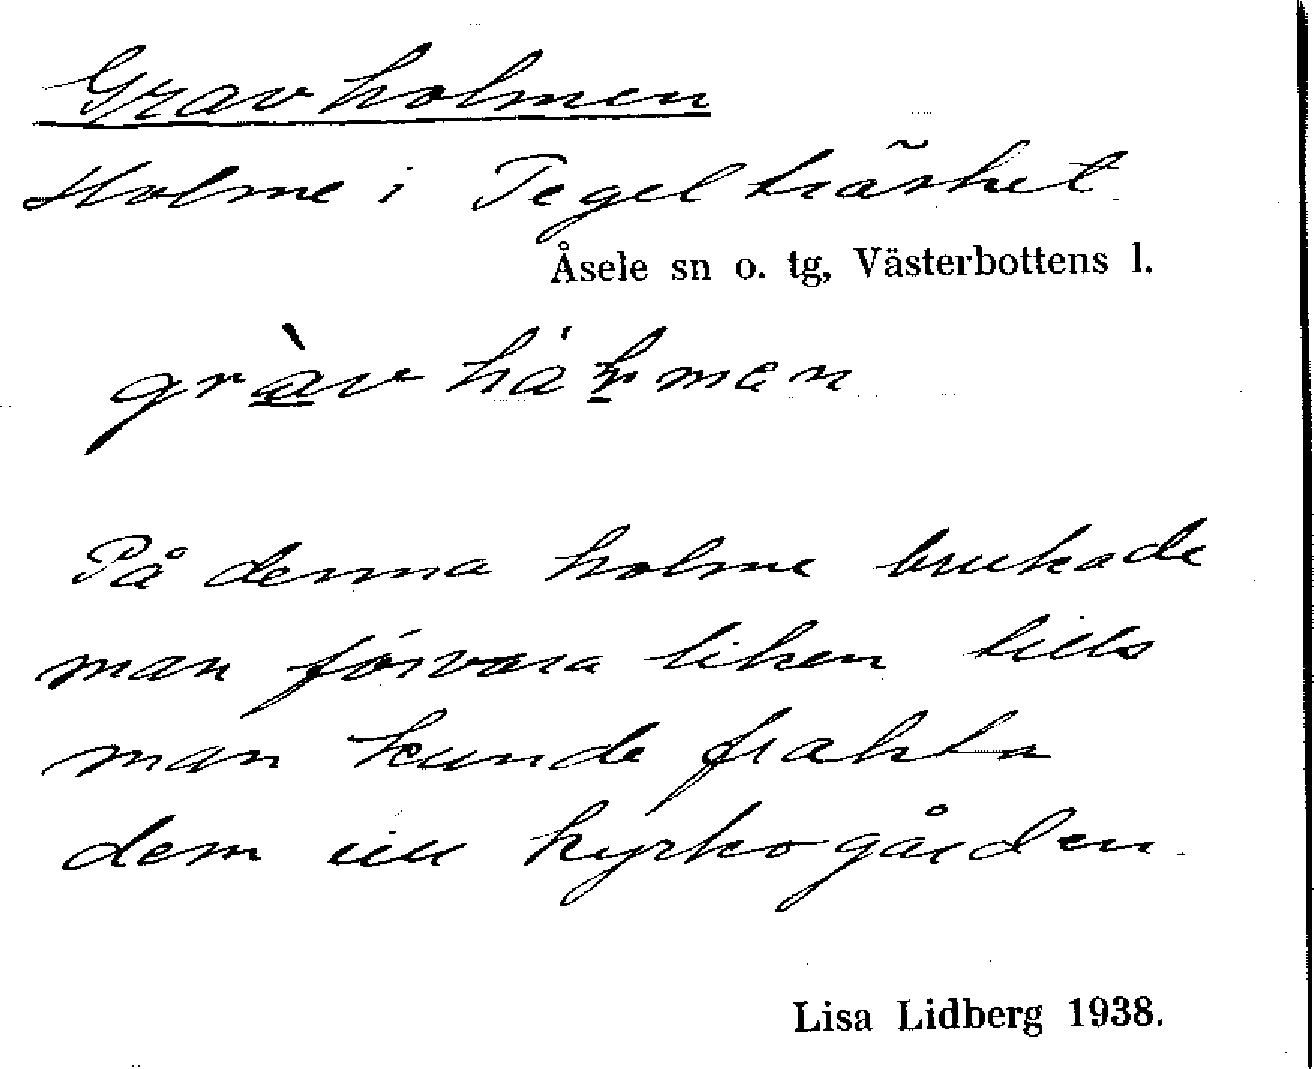 Gravholmen
Holme i Tegelträsket
Åsele sn o. tg, Västerbottens l.
På denna holme brukade
man förvara liken tills
man kunde frakta
dem till kyrkogården.
Lisa Lidberg 1938.